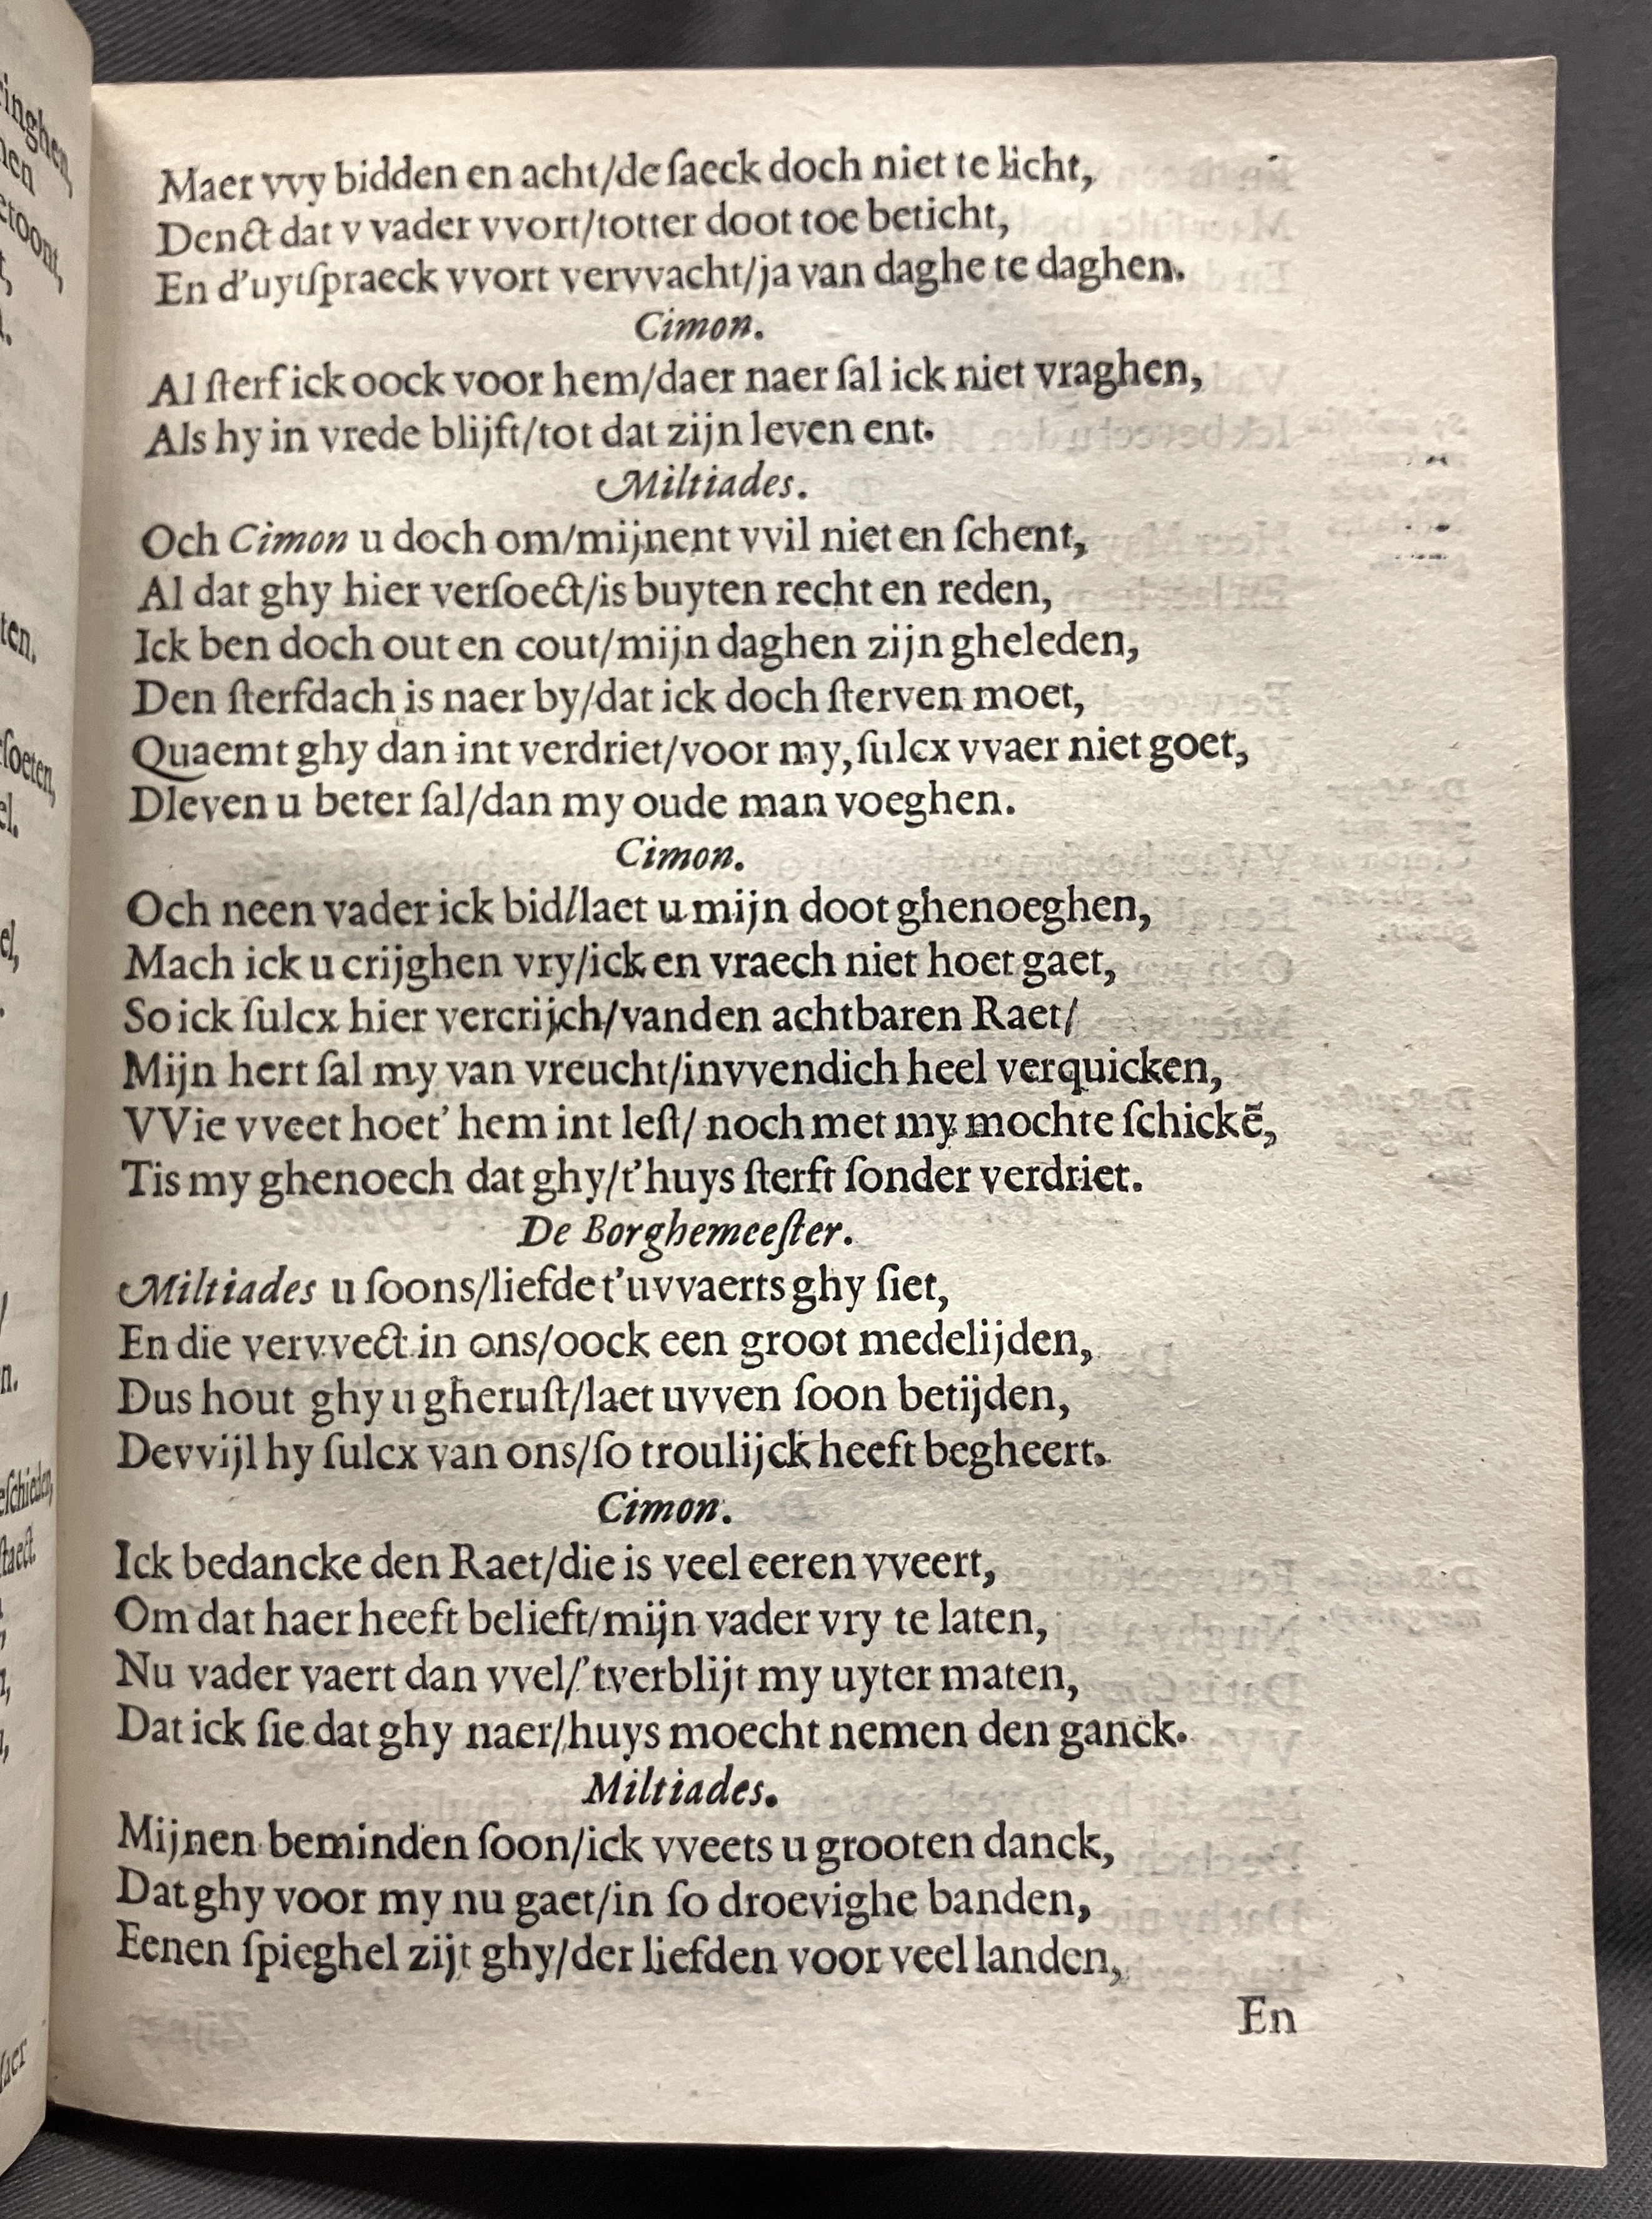 Maer vvy bidden en acht/de ſaeck doch niet te licht,
Denct dat v vader vvort/totter doot toe beticht,
En d'uytſpraeck vvort vervvacht/ja van daghe te daghen.
Cimon.
Al ſterf ick oock voor hem/daer naer ſal ick niet vraghen,
Als hy in vrede blijft/tot dat zijn leven ent.
Miltiades.
Och Cimon u doch om/mijnent vvil niet en ſchent,
Al dat ghy hier verſoect/is buyten recht en reden,
Ick ben doch out en cout/mijn daghen zijn gheleden,
Den ſterfdach is naer by/dat ick doch ſterven moet,
Quaemt ghy dan int verdriet/voor my, ſulcx vvaer niet goet,
Dleven u beter ſal/dan my oude man voeghen.
Cimon.
Och neen vader ick bid/laet u mijn doot ghenoeghen,
Mach ick u crijghen vry/ick en vraech niet hoet gaet,
So ick ſulcx hier vercrijch/vanden achtbaren Raet/
Mijn hert ſal my van vreucht/invvendich heel verquicken,
VVie vveet hoet' hem int leſt/ noch met my mochte ſchickẽ,
Tis my ghenoech dat ghy/t'huys ſterft ſonder verdriet.
De Borghemeeſter.
Miltiades u ſoons/liefde t'uvvaerts ghy ſiet,
En die vervvect in ons/oock een groot medelijden,
Dus hout ghy u gheruſt/laet uvven ſoon betijden,
Devvijl hy ſulcx van ons/ſo troulijck heeft begheert.
Cimon.
Ick bedancke den Raet/die is veel eeren vveert,
Om dat haer heeft belieft/mijn vader vry te laten,
Nu vader vaert dan vvel/'tverblijt my uyter maten,
Dat ick ſie dat ghy naer/huys moecht nemen den ganck.
Miltiades.
Mijnen beminden ſoon/ick vveets u grooten danck,
Dat ghy voor my nu gaet/in ſo droevighe banden,
Eenen ſpieghel zijt ghy/der liefden voor veel landen,
En